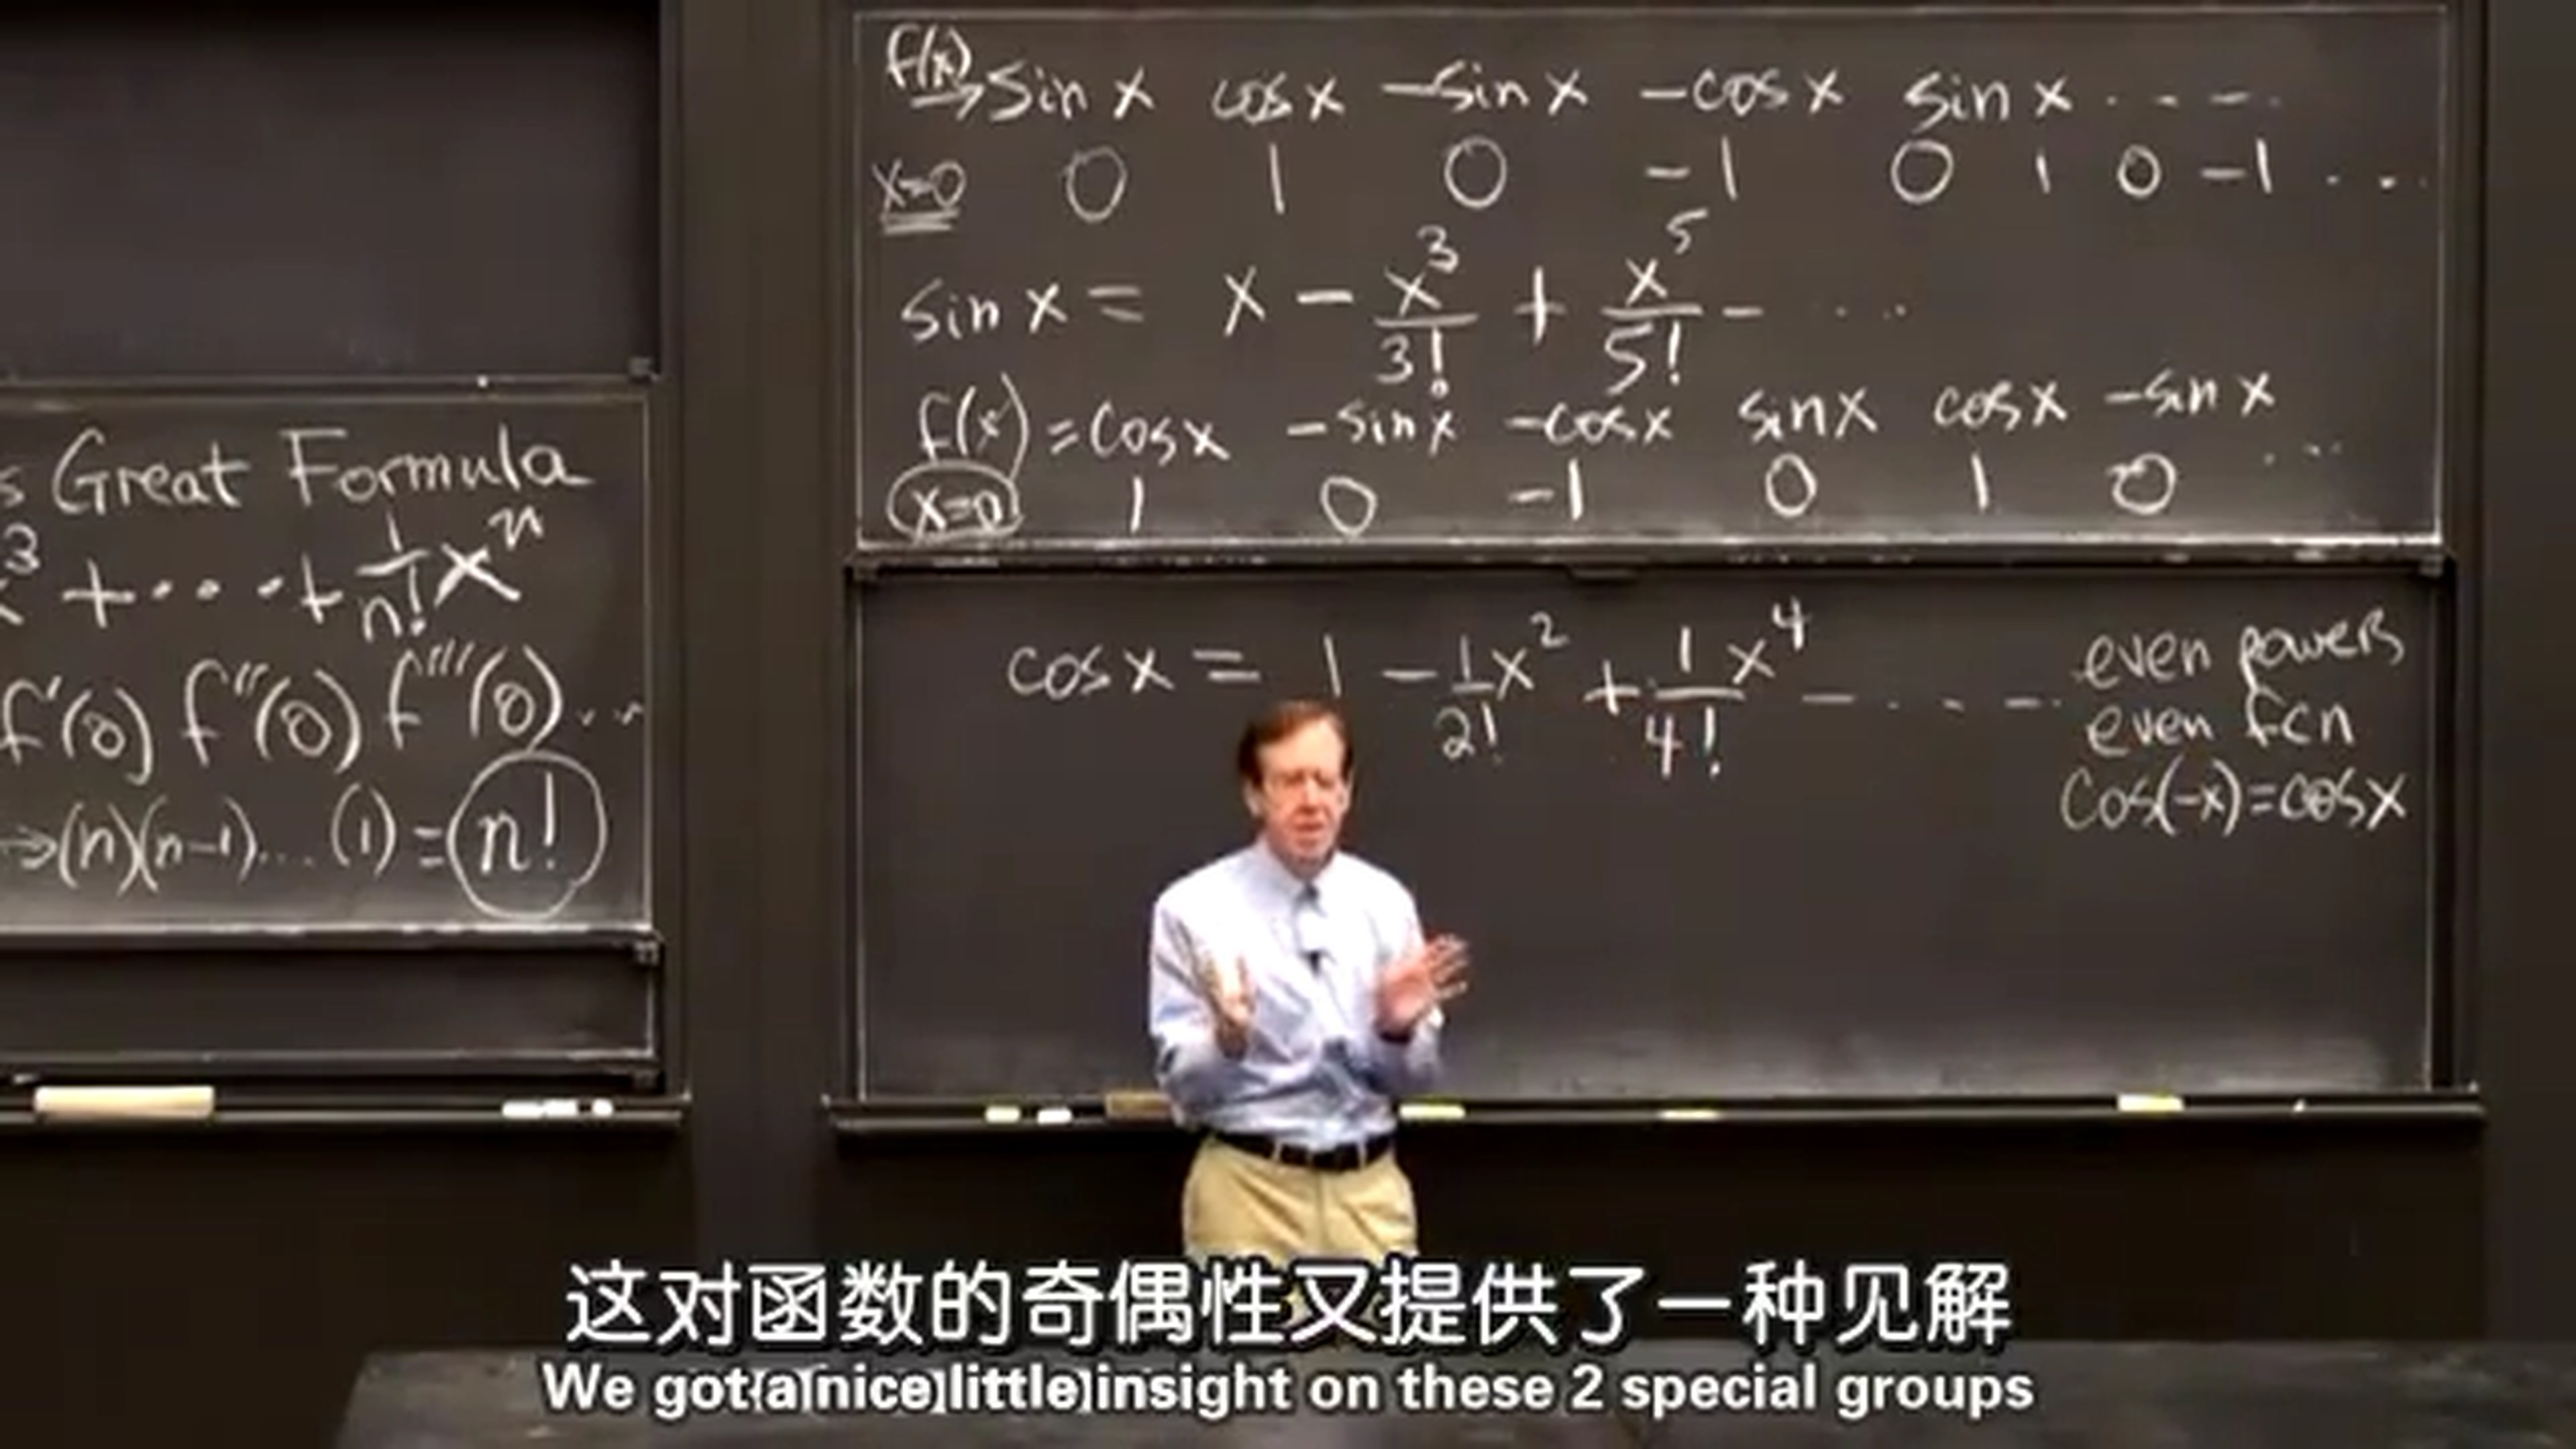 s Great Formula
x³ + ... + 1/n! xⁿ
f'(0) f''(0) f'''(0) ...
→(n)(n-1)...(1) = n!
f(x) → sin x cos x -sin x -cos x sin x ....
x=0 0 1 0 -1 0 1 0 -1 ...
sin x = x - x³/3! + x⁵/5! - ...
f(x) = cos x -sin x -cos x sin x cos x -sin x
x=0 1 0 -1 0 1 0 ...
cos x = 1 - 1/2! x² + 1/4! x⁴ - ....
even powers
even fcn
cos(-x)=cos x
这对函数的奇偶性又提供了一种见解
We got a nice little insight on these 2 special groups